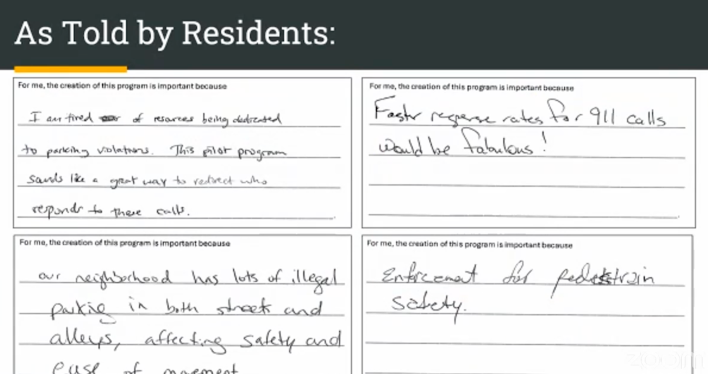 As Told by Residents:
For me, the creation of this program is important because
I am tired of resources being dedicated
to parking violations. This pilot program
sounds like a great way to redirect who
responds to these calls.
For me, the creation of this program is important because
Faster response rates for 911 calls
would be fabulous!
For me, the creation of this program is important because
our neighborhood has lots of illegal
parking in both streets and
alleys, affecting safety and
ease of movement
For me, the creation of this program is important because
Enforcement for pedestrain
safety.